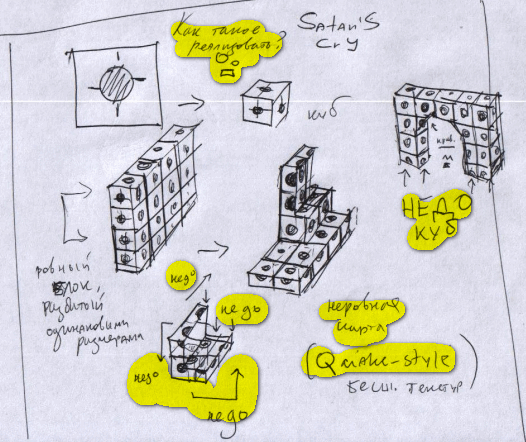 Как такое
реализовать?
SATAN'S
CRY
куб
НЕДО
КУБ
ровный
блок,
разбитый
одинаковыми
размерами
недо
недо
недо
недо
неровная
карта
(Quake-style
бесш. текстур)